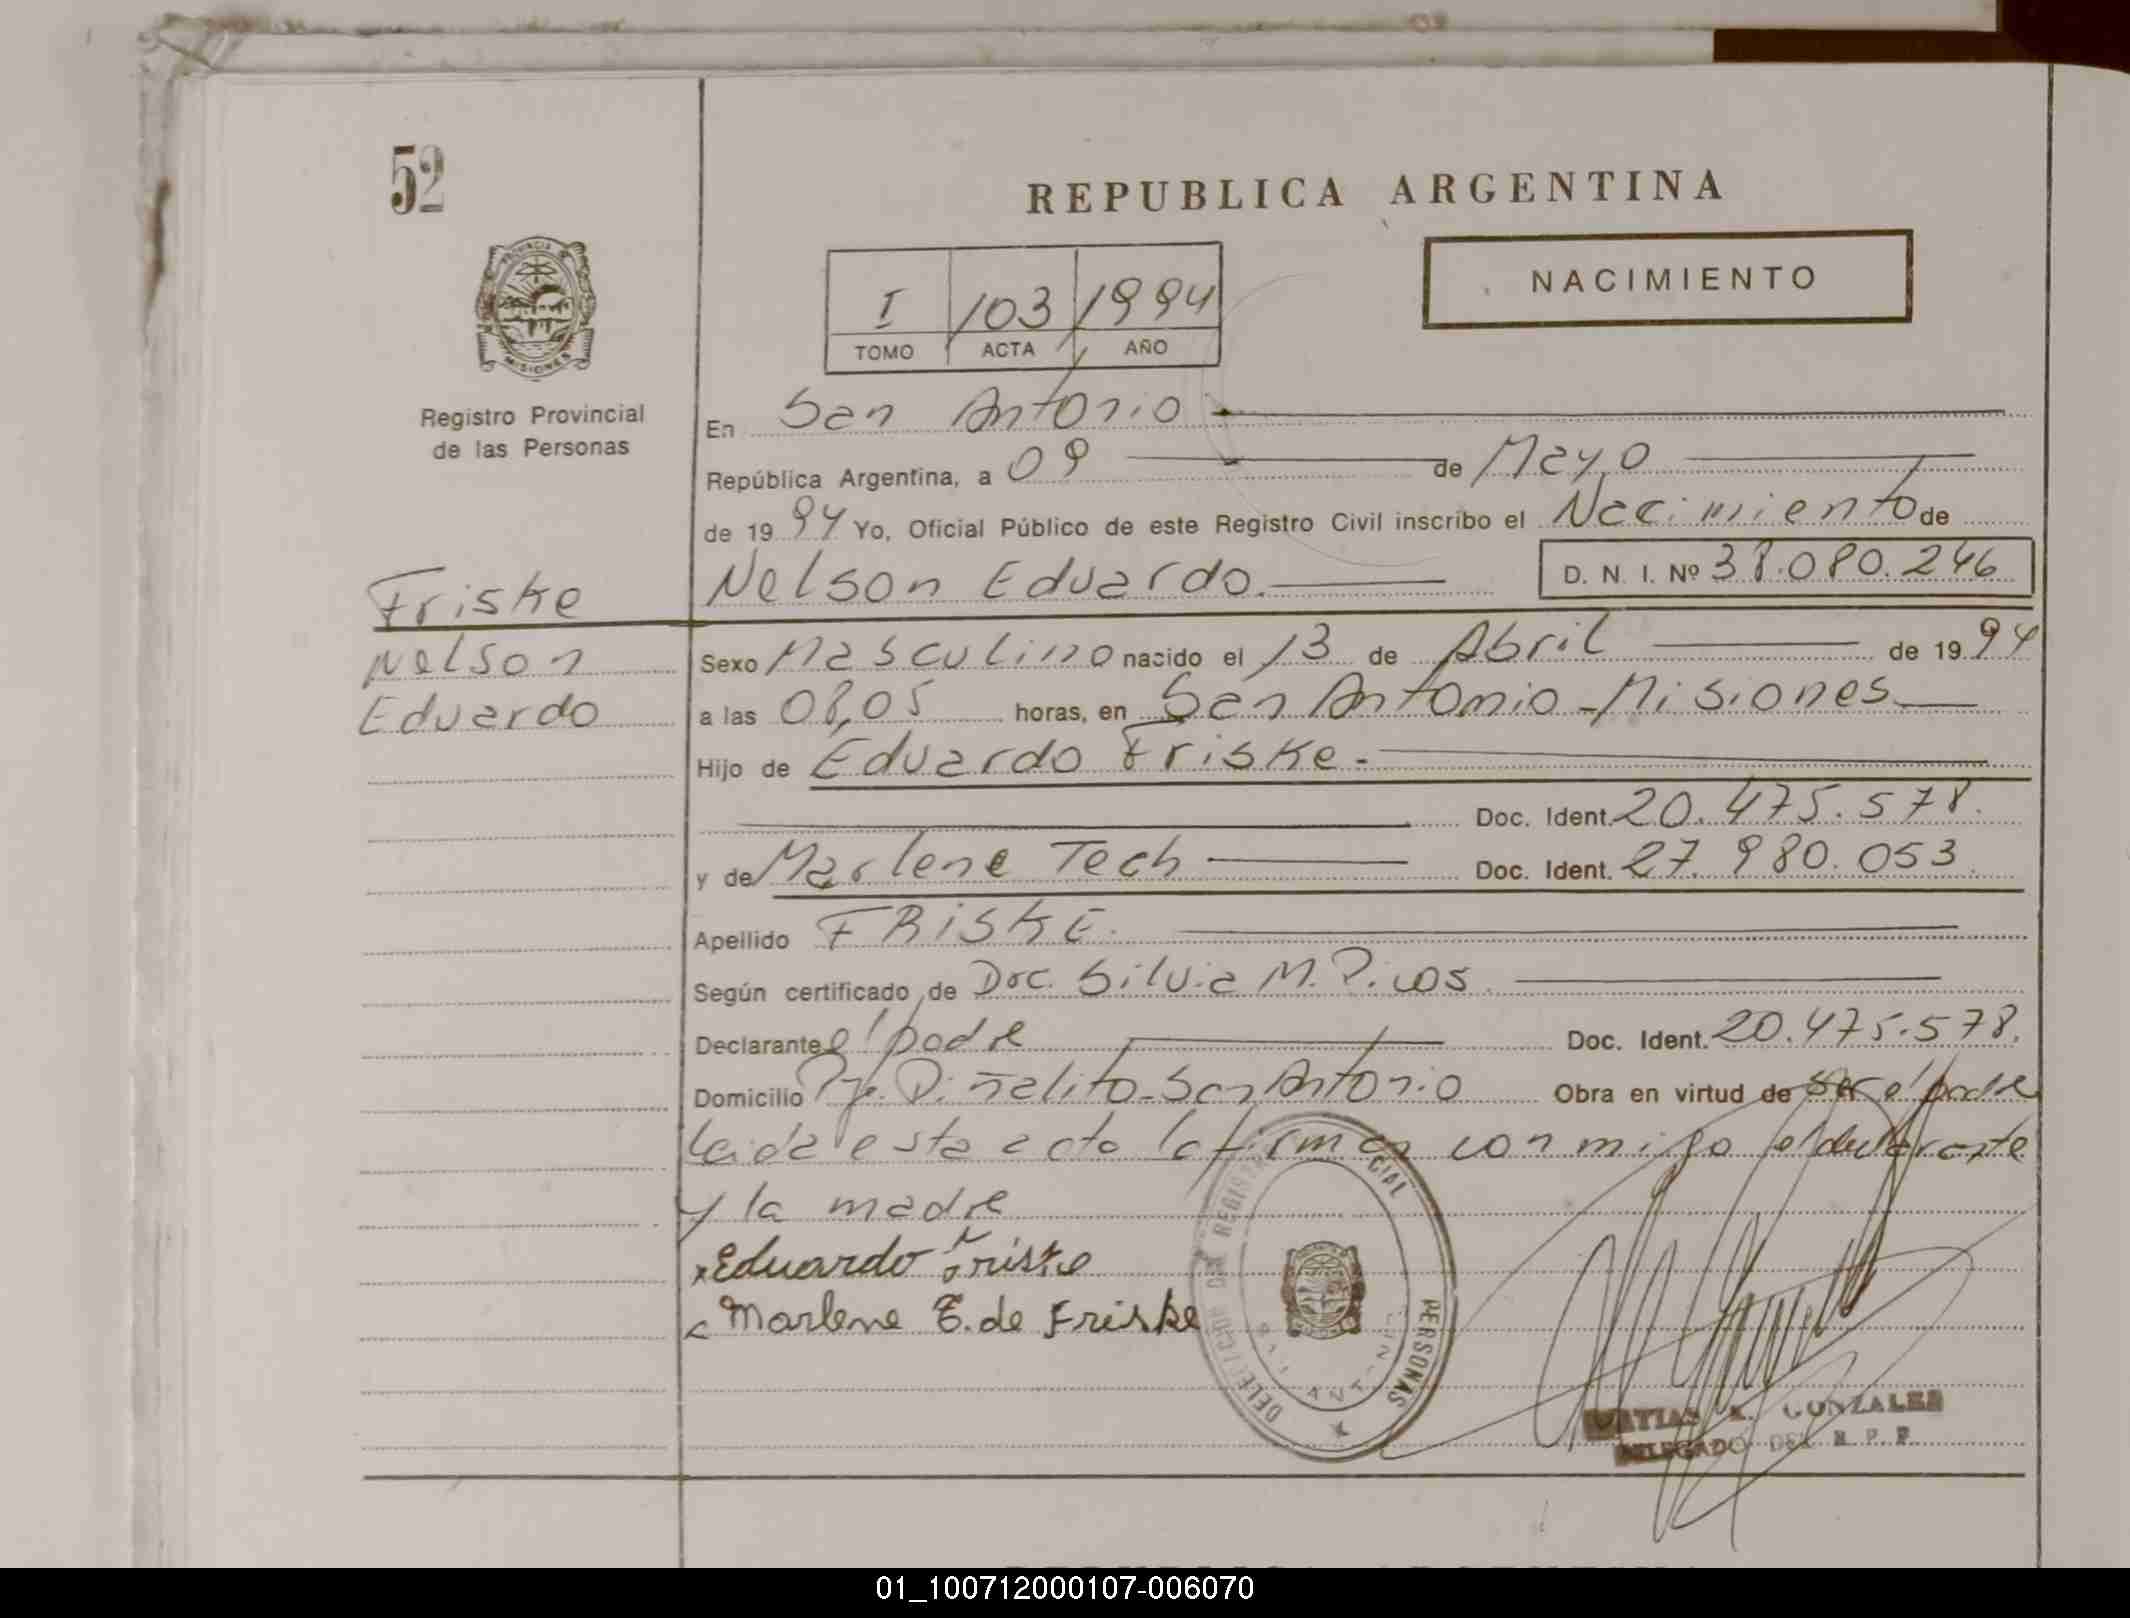 52
REPUBLICA ARGENTINA
NACIMIENTO
I 103 1994
TOMO ACTA AÑO
PROVINCIA
MISIONES
Registro Provincial
de las Personas
En San Antonio
República Argentina, a 09 de Mayo
de 1994 Yo, Oficial Público de este Registro Civil inscribo el Nacimiento de
Nelson Eduardo. D. N. I. Nº 38.080.246
Friske
Nelson
Eduardo
Sexo Masculino nacido el 13 de Abril de 1994
a las 08,05 horas, en San Antonio - Misiones
Hijo de Eduardo Friske.
Doc. Ident. 20.475.578.
y de Marlene Tech Doc. Ident. 27.980.053
Apellido FRISKE.
Según certificado de Doc. Silvia M. Picos.
Declarante el padre Doc. Ident. 20.475.578.
Domicilio Pje. Piñalito - San Antonio Obra en virtud de ser el padre
Leida esta acta la firman con migo el declarante
y la madre
x Eduardo Friske
Marlene T. de Friske
REGISTRO CIAL PERSONAS
MATIAS GONZALEZ
DELEGADO DEL R. P. P.
01_100712000107-006070